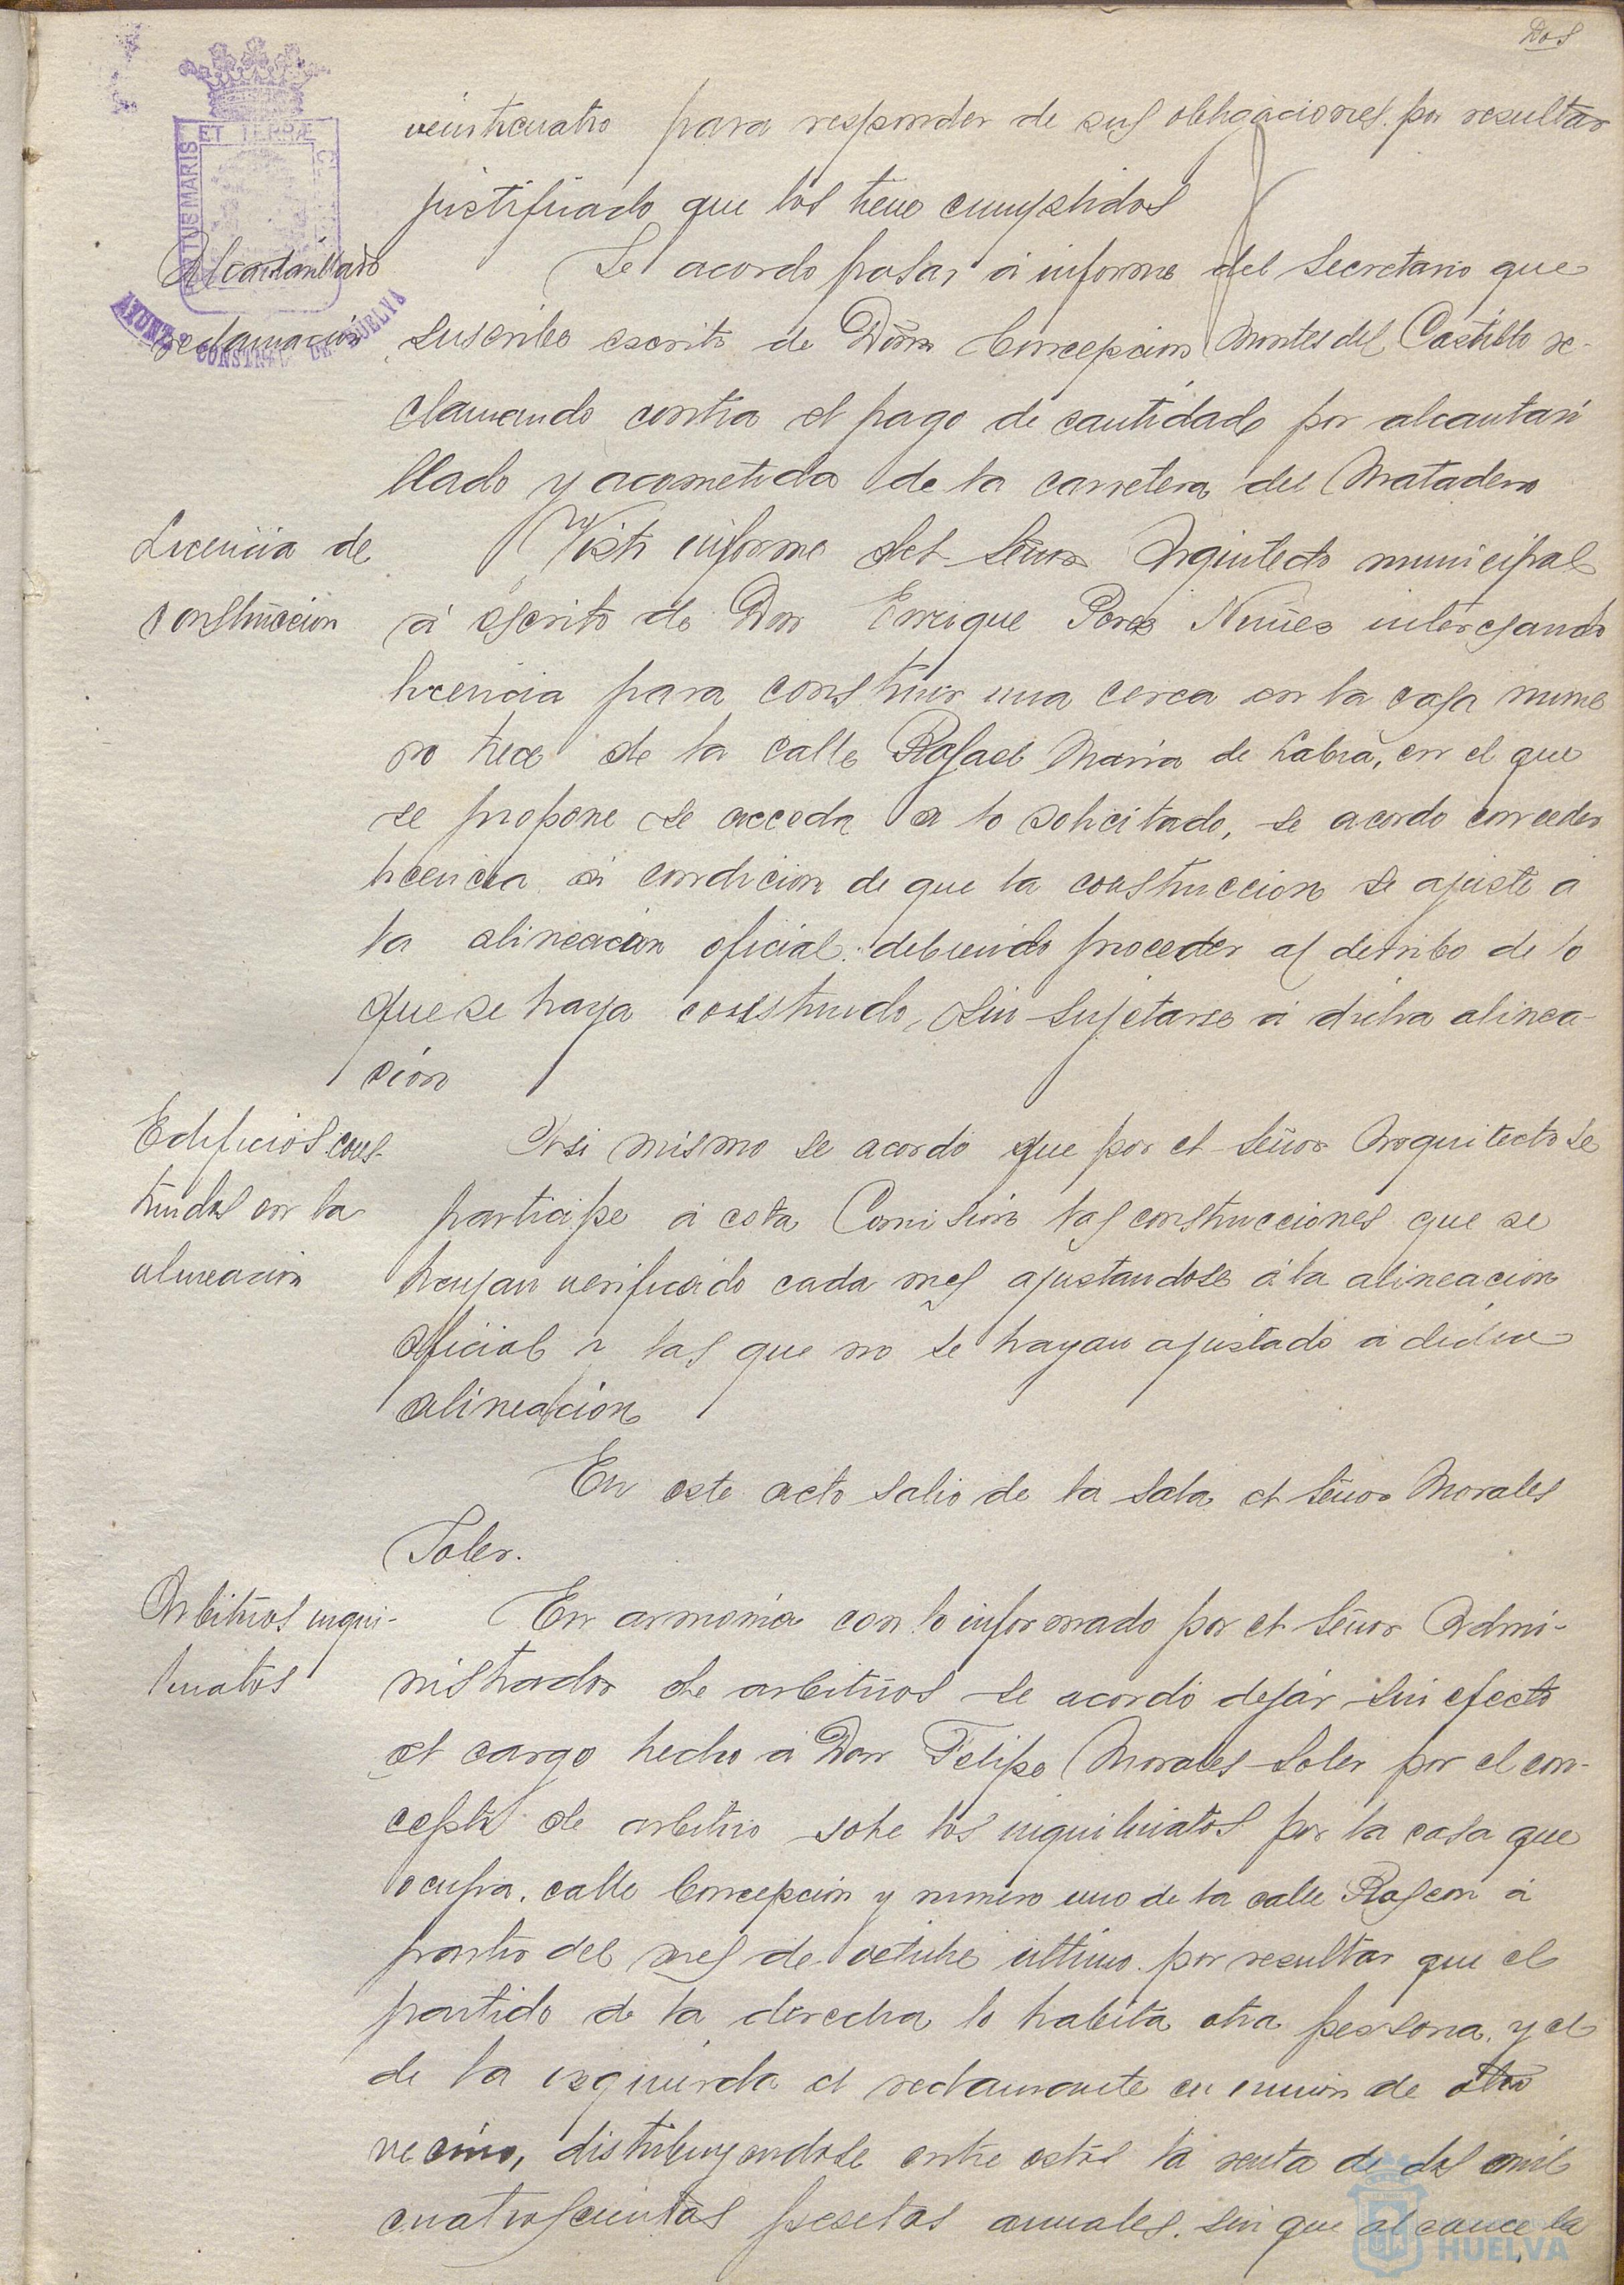 Dos
PORTUS MARIS ET TERRÆ CUSTODIA
AYUNTO CONSTNAL DE HUELVA
veinticuatro para responder de sus obligaciones por resultar
justificado que los tiene cumplidos
Alcantarillado
reclamación
Se acordo pasar á informe del Secretario que
suscribe escrito de Doña Concepcion Montes del Castillo re-
clamando contra el pago de cantidad por alcantari
llado y acometida de la carretera del Matadero
Licencia de
construccion
Visto informe del Señor Arquitecto municipal
á escrito de Don Enrique Perez Nuñez interesando
licencia para construir una cerca en la casa nume
ro trece de la calle Rafael Maria de Labra, en el que
se propone se acceda a lo solicitado, se acordo conceder
licencia á condicion de que la construccion se ajuste a
la alineacion oficial. debiendo proceder al derribo de lo
que se haya construido, sin sujetarse á dicha alinea-
cion
Edificios cons-
truidos en la
alineacion
Asi mismo se acordó que por el Señor Arquitecto se
participe á esta Comision las construcciones que se
hayan verificado cada mes ajustandose á la alineacion
oficial y las que no se hayan ajustado á dicha
alineacion
En este acto salio de la sala el Señor Morales
Soler.
Arbitrios inqui-
linatos
En armonia con lo informado por el Señor Admi-
nistrador de arbitrios se acordó dejar sin efecto
el cargo hecho á Don Felipe Morales Soler por el con-
cepto de arbitrio sobre los inquilinatos por la casa que
ocupa. calle Concepcion y numero uno de la calle Rascon á
partir del mes de octubre ultimo. por resultar que el
partido de la derecha lo habita otra persona, y el
de la izquierda el reclamante en union de otro
vecino, distribuyendose entre estos la renta de dos mil
cuatroscientas pesetas anuales. sin que alcance la
HUELVA